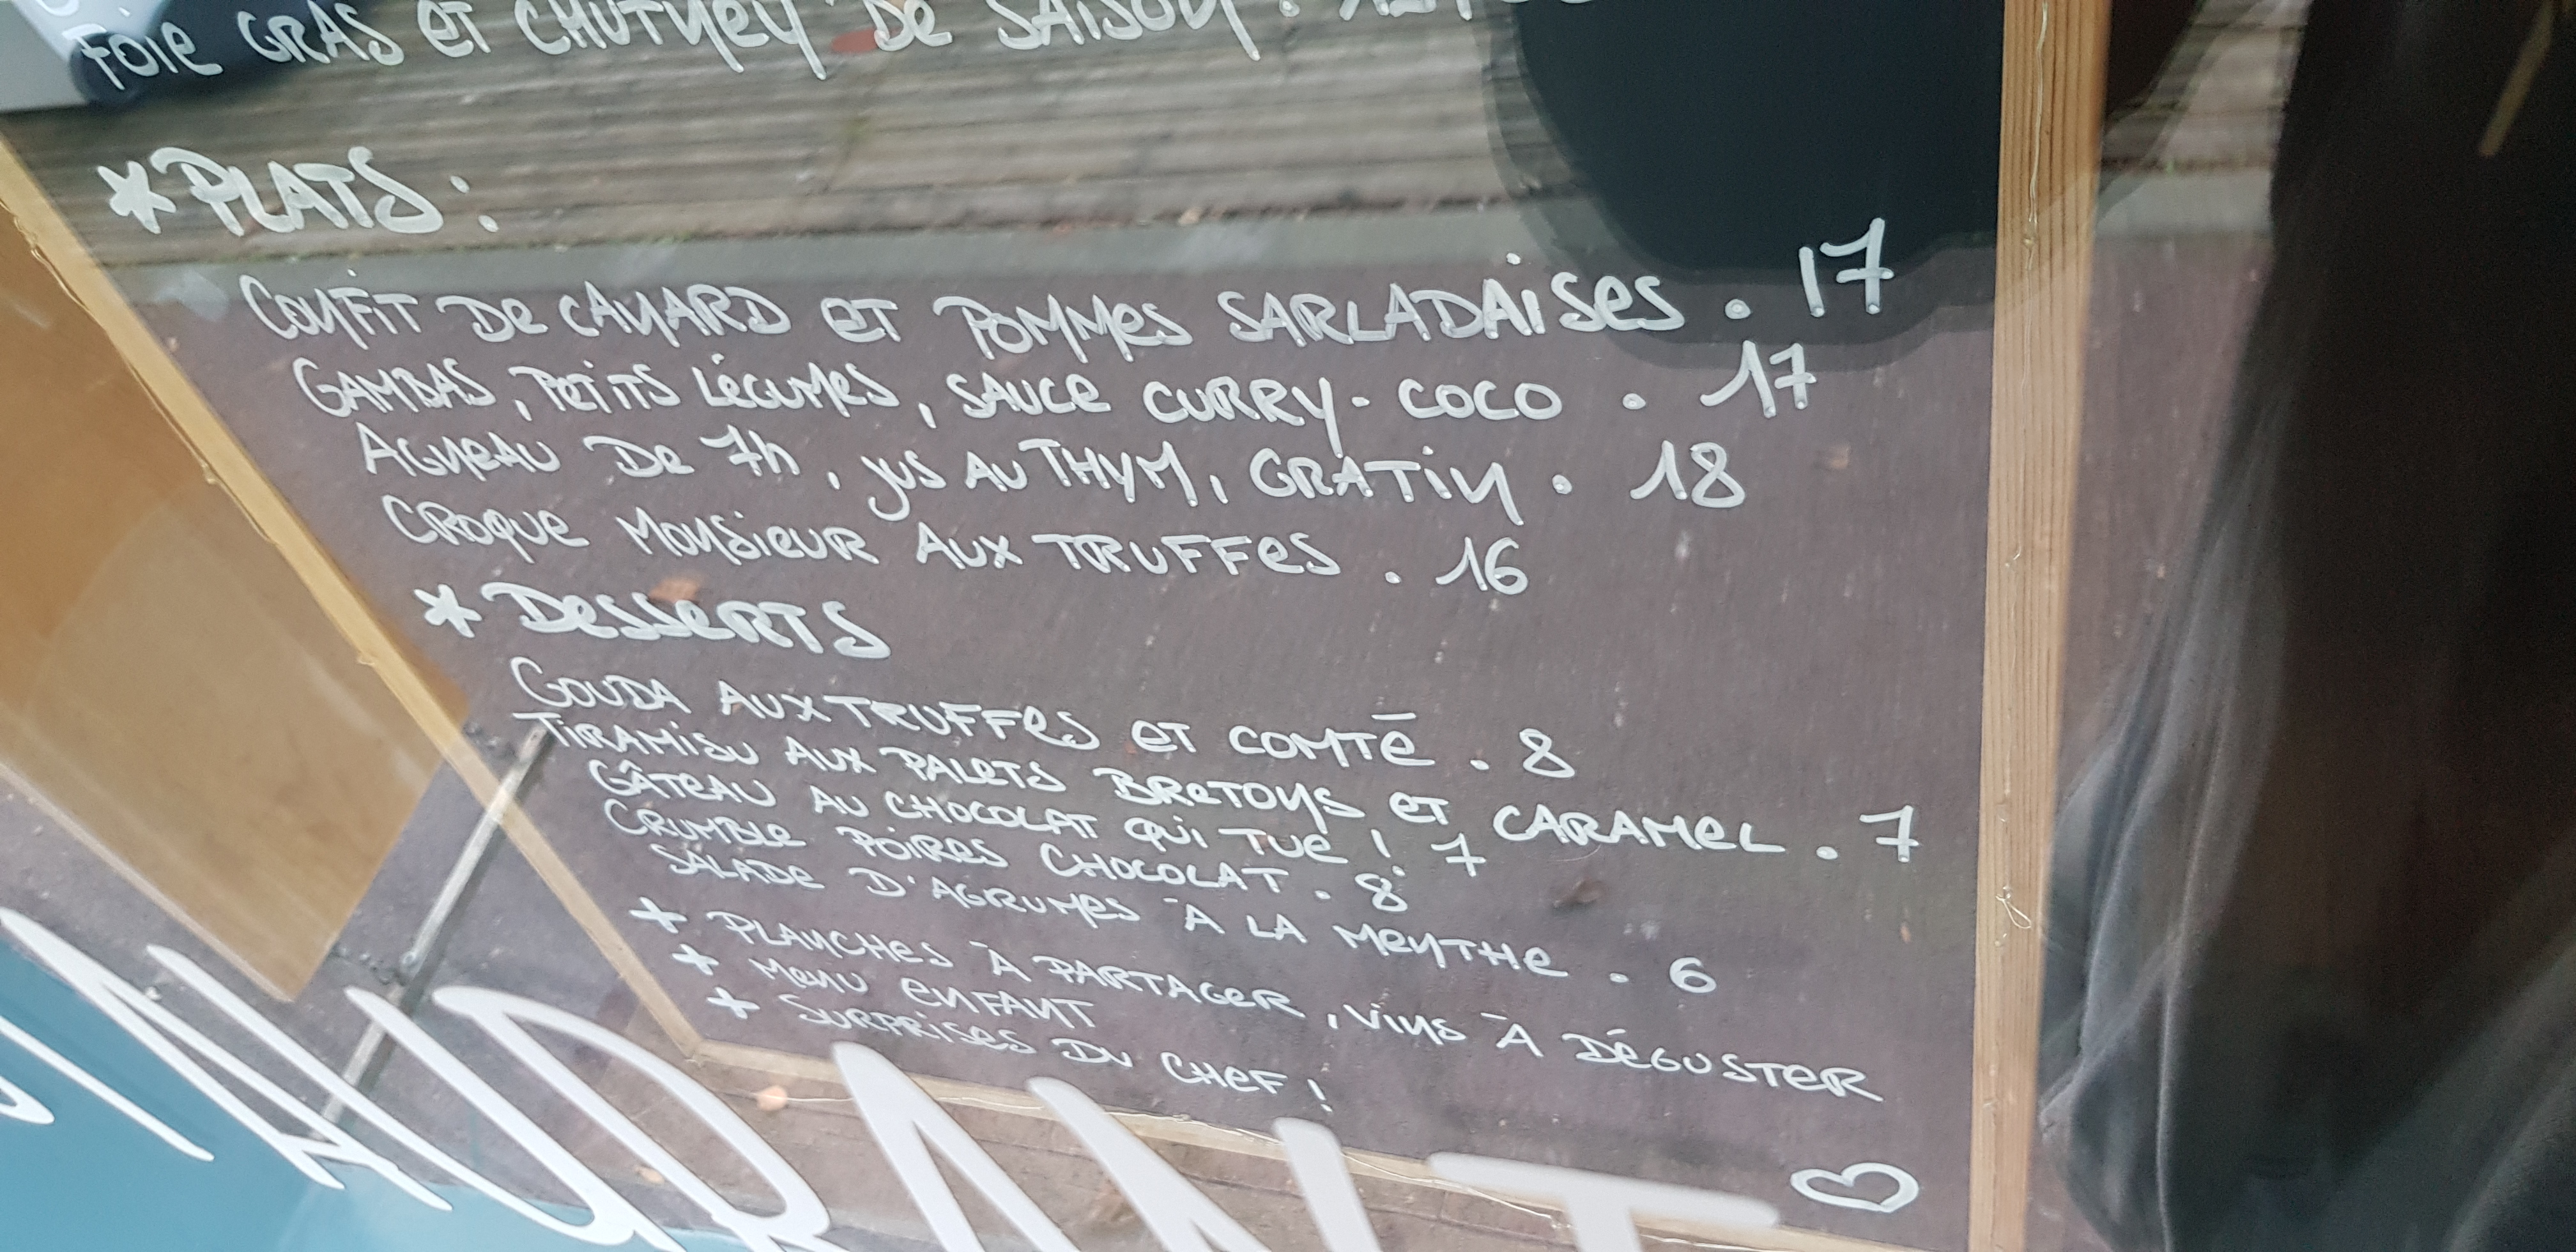 FOIE GRAS ET CHUTNEY DE SAISON .
* PLATS :
CONFIT DE CANARD ET POMMES SARLADAISES . 17
GAMBAS, PETITS LÉGUMES, SAUCE CURRY-COCO . 17
AGNEAU DE 7h, JUS AU THYM, GRATIN . 18
CROQUE MONSIEUR AUX TRUFFES . 16
* DESSERTS
GOUDA AUX TRUFFES ET COMTÉ . 8
TIRAMISU AUX PALETS BRETONS ET CARAMEL . 7
GÂTEAU AU CHOCOLAT QUI TUE ! 7
CRUMBLE POIRES CHOCOLAT . 8
SALADE D'AGRUMES À LA MENTHE . 6
+ PLANCHES À PARTAGER, VINS À DÉGUSTER
+ MENU ENFANT
+ SURPRISES DU CHEF !